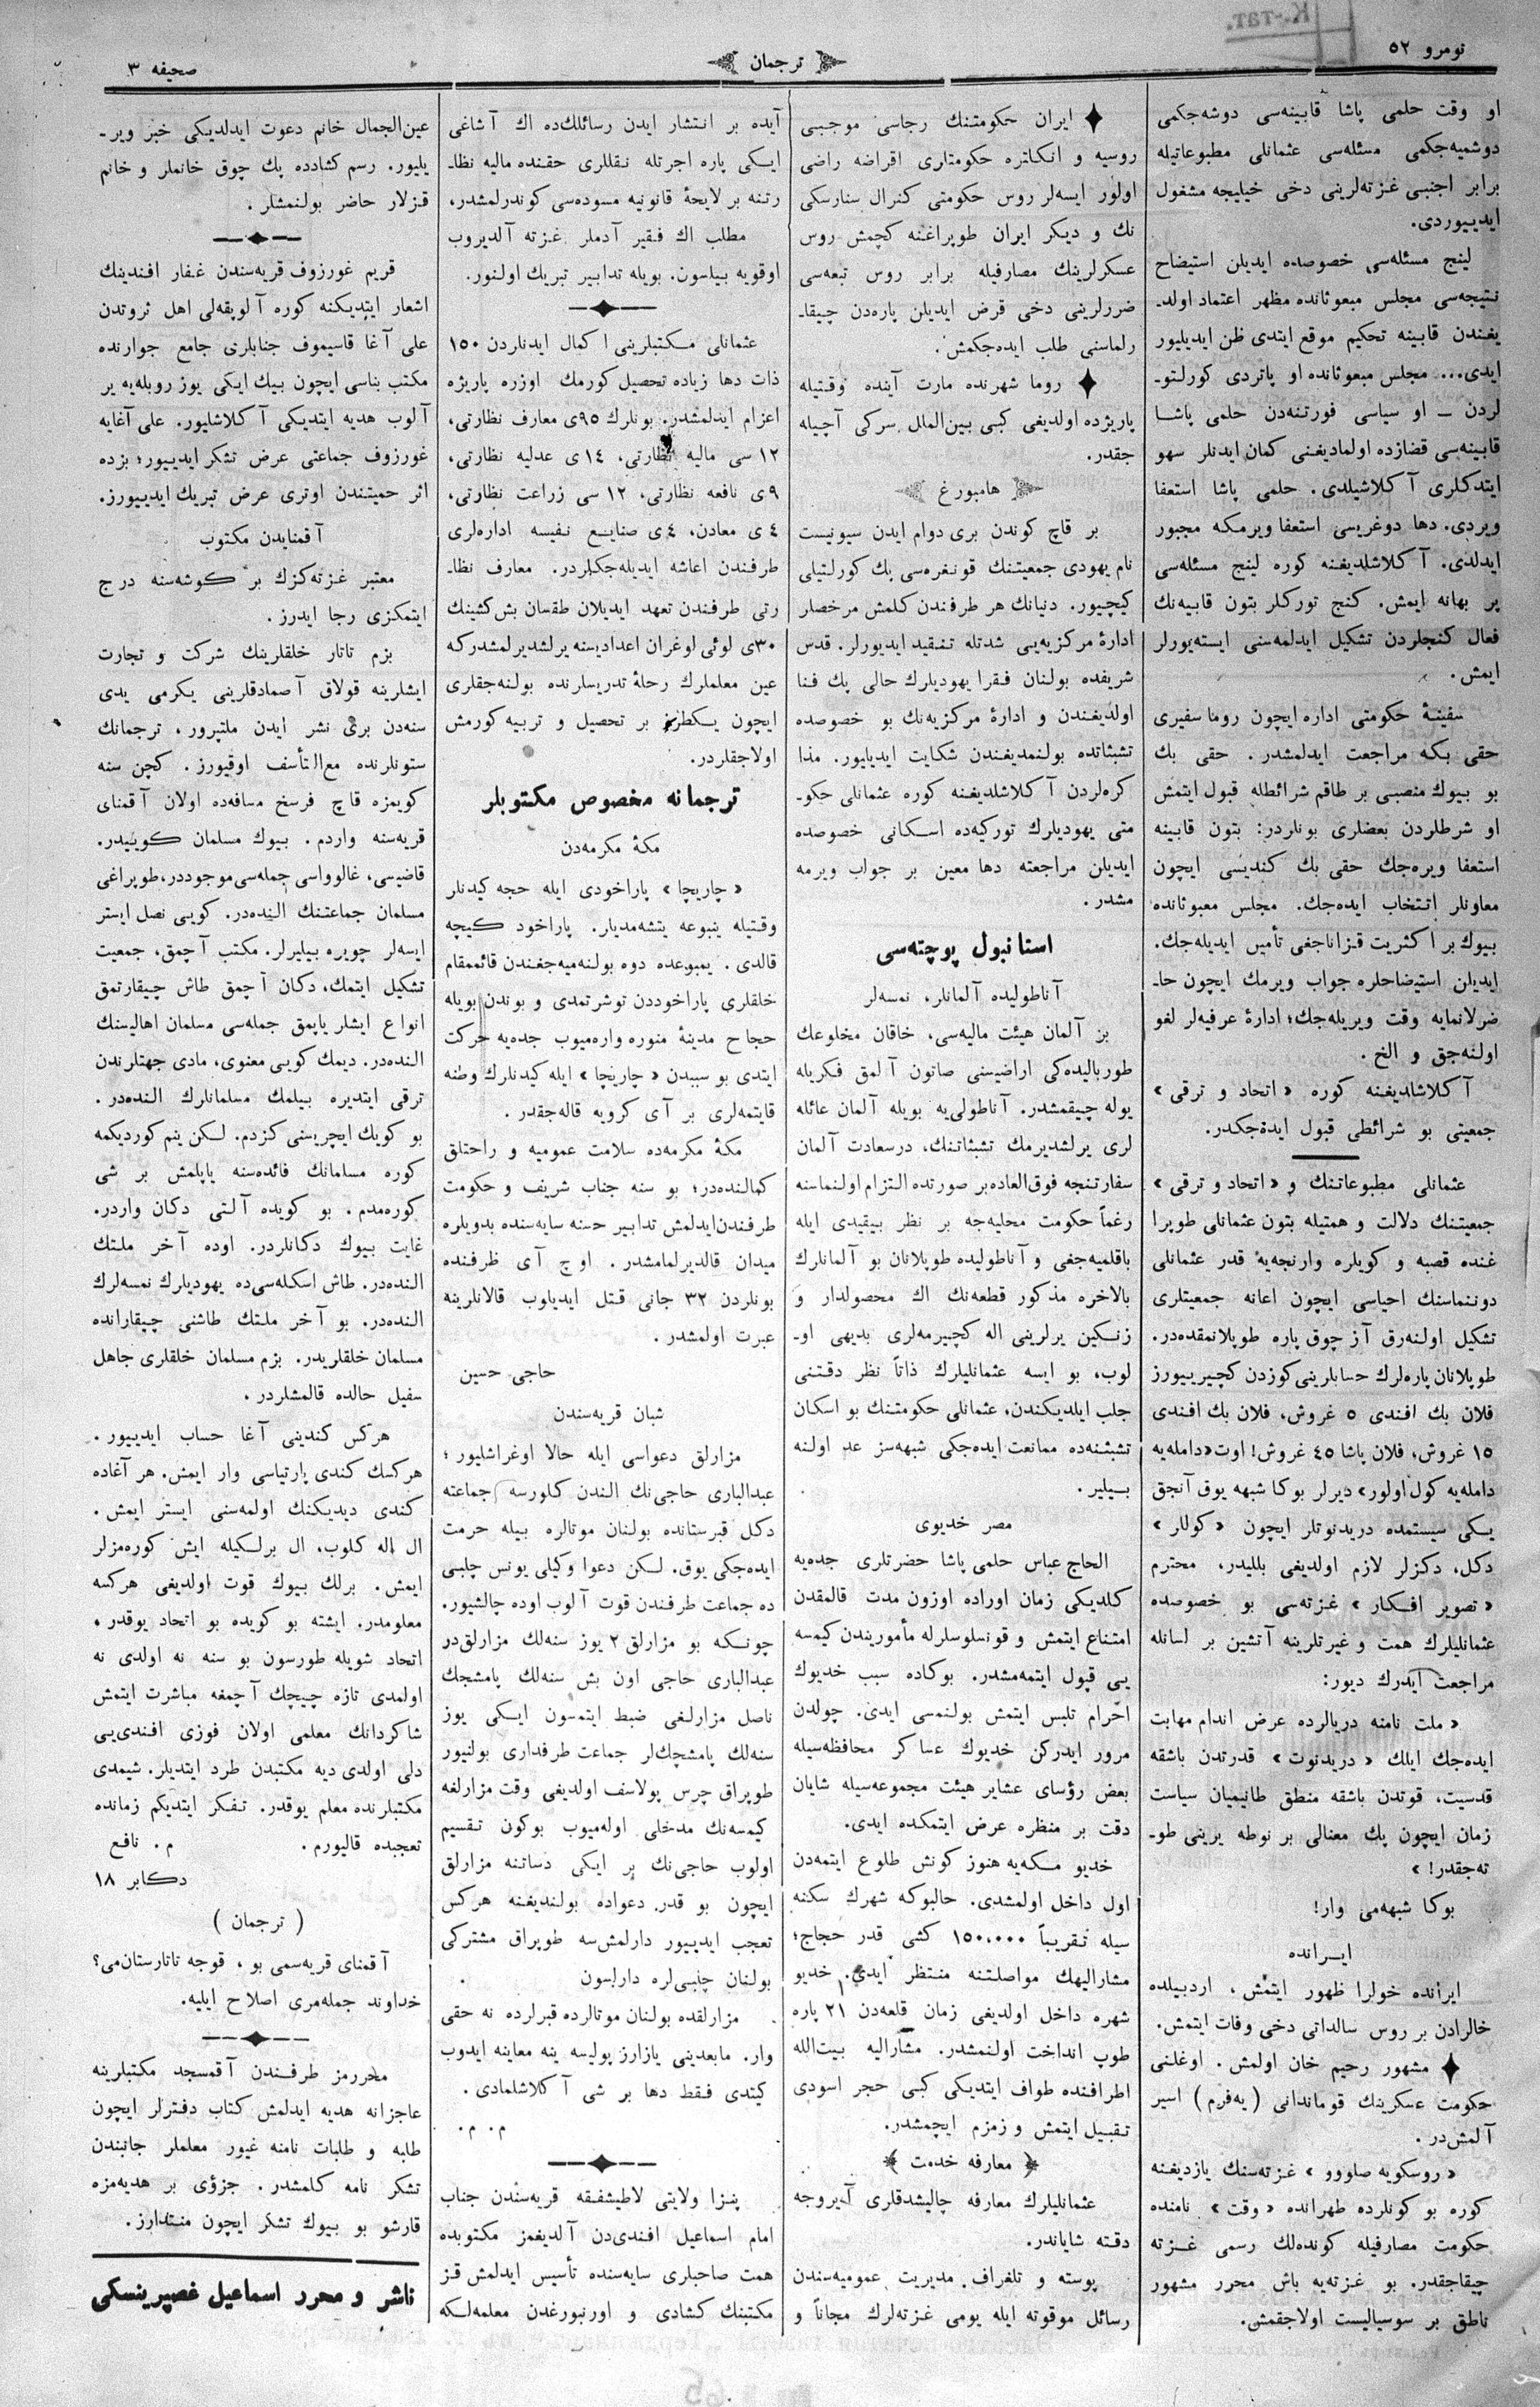 نومرو ٥٢
ترجمان
صحیفه ٣
او وقت حلمی پاشا قابینه‌سی دوشه‌جکمی
دوشمیه‌جکمی مسئله‌سی عثمانلی مطبوعاتیله
برابر اجنبی غزته‌لرینی دخی خیلیجه مشغول
ایدییوردی.
لینج مسئله‌سی خصوصده ایدیلن استیضاح
نتیجه‌سی مجلس مبعوثانده مظهر اعتماد اولد-
یغندن قابینه تحکیم موقع ایتدی ظن ایدیلیور
ایدی... مجلس مبعوثانده او پاتردی کورلتو-
لردن – او سیاسی فورتنه‌دن حلمی پاشا
قابینه‌سی قضازده اولمادیغنی کمان ایدنلر سهو
ایتدکلری آکلاشیلدی. حلمی پاشا استعفا
ویردی. دها دوغریسی استعفا ویرمکه مجبور
ایدلدی. آکلاشلدیغنه کوره لینج مسئله‌سی
بر بهانه ایمش. کنج تورکلر بتون قابینه‌نك
فعال کنجلردن تشکیل ایدلمه‌سنی ایسته‌یورلر
ایمش.
سفینهٔ حکومتی اداره ایچون روما سفیری
حقی بکه مراجعت ایدلمشدر. حقی بك
بو بیوك منصبی بر طاقم شرائطله قبول ایتمش
او شرطلردن بعضلری بونلردر: بتون قابینه
استعفا ویره‌جك حقی بك کندیسی ایچون
معاونلر انتخاب ایده‌جك. مجلس مبعوثانده
بیوك بر اکثریت قزاناجغی تأمین ایدیله‌جك.
ایدیلن استیضاحلره جواب ویرمك ایچون حا-
ضرلانمایه وقت ویریله‌جك؛ ادارهٔ عرفیه‌لر لغو
اولنه‌جق و الخ.
آکلاشلدیغنه کوره «اتحاد و ترقی»
جمعیتی بو شرائطی قبول ایده‌جکدر.
عثمانلی مطبوعاتنك و «اتحاد و ترقی»
جمعیتنك دلالت و همتیله بتون عثمانلی طوپرا
غنده قصبه و کویلره وارنجه‌یه قدر عثمانلی
دوننماسنك احیاسی ایچون اعانه جمعیتلری
تشکیل اولنه‌رق آز چوق پاره طوپلانمقده‌در.
طوپلانان پاره‌لرك حسابلرینی کوزدن کچیرییورز
فلان بك افندی ٥ غروش، فلان بك افندی
١٥ غروش، فلان پاشا ٤٥ غروش! اوت «دامله‌یه
دامله‌یه کول اولور» دیرلر بوکا شبهه یوق آنجق
یکی سیستمده دریدنوتلر ایچون «کوللر»
دکل، دکزلر لازم اولدیغی بللیدر، محترم
«تصویر افکار» غزته‌سی بو خصوصده
عثمانلیلرك همت و غیرتلرینه آتشین بر لسانله
مراجعت ایدرك دیور:
«ملت نامنه دریالرده عرض اندام مهابت
ایده‌جك ایلك «دریدنوت» قدرتدن باشقه
قدسیت، قوتدن باشقه منطق طانیمیان سیاست
زمان ایچون پك معنالی بر نوطه یرینی طو-
ته‌جقدر!»
بوکا شبهه‌می وار!
ایرانده
ایرانده خولرا ظهور ایتمش، اردبیلده
خالرادن بر روس سالداتی دخی وفات ایتمش.
مشهور رحیم خان اولمش. اوغلنی
حکومت عسکرینك قوماندانی (یه‌فرم) اسیر
آلمش‌در.
«روسکویه صلووو» غزته‌سنك یازدیغنه
کوره بو کونلرده طهرانده «وقت» نامنده
حکومت مصارفیله کونده‌لك رسمی غزته
چیقاجقدر. بو غزته‌یه باش محرر مشهور
ناطق بر سوسیالیست اولاجقمش.
ایران حکومتنك رجاسی موجبی
روسیه و انکلتره حکومتلری اقراضه راضی
اولور ایسه‌لر روس حکومتی کنرال سنارسکی
نك و دیکر ایران طوپراغنه کچمش روس
عسکرلرینك مصارفیله برابر روس تبعه‌سی
ضررلرینی دخی قرض ایدیلن پاره‌دن چیقا-
رلماسنی طلب ایده‌جکمش.
روما شهرنده مارت آینده وقتیله
پاریژده اولدیغی کبی بین‌الملل سرکی آچیله
جقدر.
هامبورغ
بر قاچ کوندن بری دوام ایدن سیونیست
نام یهودی جمعیتنك قونغره‌سی بك کورلتیلی
کیچیور. دنیانك هر طرفندن کلمش مرخصلر
ادارهٔ مرکزیه‌یی شدتله تنقید ایدیورلر. قدس
شریفده بولنان فقرا یهودیلرك حالی پك فنا
اولدیغندن و ادارهٔ مرکزیه‌نك بو خصوصده
تشبثاتده بولنمدیغندن شکایت ایدیلیور. مذا
کره‌لردن آکلاشلدیغنه کوره عثمانلی حکو-
متی یهودیلرك تورکیه‌ده اسکانی خصوصده
ایدیلن مراجعته دها معین بر جواب ویرمه
مشدر.
استانبول پوچته‌سی
آناطولیده آلمانلر، نمسه‌لر
بز آلمان هیئت مالیه‌سی، خاقان مخلوعك
طوربالیده‌کی اراضیسنی صاتون آلمق فکریله
یوله چیقمشدر. آناطولی‌یه بویله آلمان عائله
لری یرلشدیرمك تشبثاتنك، درسعادت آلمان
سفارتنجه فوق‌العاده بر صورتده التزام اولنماسنه
رغماً حکومت محلیه‌جه بر نظر بیقیدی ایله
باقلمیه‌جغی و آناطولیده طوپلانان بو آلمانلرك
بالاخره مذکور قطعه‌نك اك محصولدار و
زنکین یرلرینی اله کچیرمه‌لری بدیهی او-
لوب، بو ایسه عثمانلیلرك ذاتاً نظر دقتنی
جلب ایلدیکندن، عثمانلی حکومتنك بو اسکان
تشبثنه‌ده ممانعت ایده‌جکی شبهه‌سز عد اولنه
بیلیر.
مصر خدیوی
الحاج عباس حلمی پاشا حضرتلری جده‌یه
کلدیکی زمان اوراده اوزون مدت قالمقدن
امتناع ایتمش و قونسلوسلرله مأموریندن کیمسه
یی قبول ایتمه‌مشدر. بوکاده سبب خدیوك
احرام تلبس ایتمش بولنمسی ایدی. چولدن
مرور ایدرکن خدیوك عساکر محافظه‌سیله
بعض رؤسای عشایر هیئت مجموعه‌سیله شایان
دقت بر منظره عرض ایتمکده ایدی.
خدیو مکه‌یه هنوز کونش طلوع ایتمه‌دن
اول داخل اولمشدی. حالبوکه شهرك سکنه
سیله تقریباً ١٥٠،٠٠٠ کشی قدر حجاج؛
مشارالیهك مواصلتنه منتظر ایدی. خدیو
شهره داخل اولدیغی زمان قلعه‌دن ٢١ پاره
طوپ انداخت اولنمشدر. مشارالیه بیت‌الله
اطرافنده طواف ایتدیکی کبی حجر اسودی
تقبیل ایتمش و زمزم ایچمشدر.
معارفه خدمت
عثمانلیلرك معارفه چالیشدقلری آیروجه
دقته شایاندر.
پوسته و تلغراف مدیریت عمومیه‌سندن
رسائل موقوته ایله یومی غزته‌لرك مجاناً و
آیده بر انتشار ایدن رسائلك‌ده اك آشاغی
ایکی پاره اجرتله نقللری حقنده مالیه نظا-
رتنه بر لایحهٔ قانونیه مسوده‌سی کوندرلمشدر،
مطلب اك فقیر آدملر غزته آلدیروب
اوقویه بیلسون. بویله تدابیر تبریك اولنور.
عثمانلی مکتبلرینی اکمال ایدنلردن ١٥٠
ذات دها زیاده تحصیل کورمك اوزره پاریژه
اعزام ایدلمشدر. بونلرك ٩٥ی معارف نظارتی،
١٢ سی مالیه نظارتی، ١٤ی عدلیه نظارتی،
٩ی نافعه نظارتی، ١٢ سی زراعت نظارتی،
٤ی معادن، ٤ی صنایع نفیسه اداره‌لری
طرفندن اعاشه ایدیله‌جکلردر. معارف نظا-
رتی طرفندن تعهد ایدیلان طقسان بش کشینك
٣٠ی لوئی لوغران اعدادیسنه یرلشدیرلمشدرکه
عین معلملرك رحلهٔ تدریسلرنده بولنه‌جقلری
ایچون یکطرز بر تحصیل و تربیه کورمش
اولاجقلردر.
ترجمانه مخصوص مکتوبلر
مکهٔ مکرمه‌دن
«چاریچا» پاراخودی ایله حجه کیدنلر
وقتیله ینبوعه یتشه‌مدیلر. پاراخود کیچه
قالدی. یمبوعده دوه بولنه‌میه‌جغندن قائممقام
خلقلری پاراخوددن توشرتمدی و بوندن بویله
حجاج مدینهٔ منوره واره‌میوب جده‌یه حرکت
ایتدی بو سببدن «چاریچا» ایله کیدنلرك وطنه
قایتمه‌لری بر آی کرویه قاله‌جقدر.
مکهٔ مکرمه‌ده سلامت عمومیه و راحتلق
کمالنده‌در؛ بو سنه جناب شریف و حکومت
طرفندن ایدلمش تدابیر حسنه سایه‌سنده بدویلره
میدان قالدیرلمامشدر. اوچ آی ظرفنده
بونلردن ٣٢ جانی قتل ایدیلوب قالانلرینه
عبرت اولمشدر.
حاجی حسین
شبان قریه‌سندن
مزارلق دعواسی ایله حالا اوغراشلیور؛
عبدالباری حاجی‌نك الندن کلورسه جماعته
دکل قبرستانده بولنان موتالره بیله حرمت
ایده‌جکی یوق. لکن دعوا وکیلی یونس چلبی
ده جماعت طرفندن قوت آلوب اوده چالشیور.
چونکه بو مزارلق ٢ یوز سنه‌لك مزارلق‌در
عبدالباری حاجی اون بش سنه‌لك پامشجك
ناصل مزارلغی ضبط ایتمسون ایکی یوز
سنه‌لك پامشچك‌لر جماعت طرفداری بولنیور
طوپراق چرس پولاسف اولدیغی وقت مزارلغه
کیمسه‌نك مدخلی اوله‌میوب بوکون تقسیم
اولوب حاجی‌نك بر ایکی دساتنه مزارلق
ایچون بو قدر دعواده بولندیغنه هرکس
تعجب ایدییور دارلمش‌سه طوپراق مشترکی
بولنان چلبی‌لره دارلسون
مزارلقده بولنان موتالرده قبرلرده نه حقی
وار. مابعدینی یازارز پولیسه ینه معاینه ایدوب
کیتدی فقط دها بر شی آکلاشلمادی.
م. م.
پنزا ولایتی لاطیشفیقه قریه‌سندن جناب
امام اسماعیل افندی‌دن آلدیغمز مکتوبده
همت صاحبلری سایه‌سنده تأسیس ایدلمش قز
مکتبنك کشادی و اورنبورغدن معلمه‌لکه
عین‌الجمال خانم دعوت ایدلدیکی خبر ویر-
یلیور. رسم کشادده پك چوق خانملر و خانم
قزلار حاضر بولنمشلر.
قریم غورزوف قریه‌سندن غفار افندینك
اشعار ایتدیکنه کوره آلوپقه‌لی اهل ثروتدن
علی آغا قاسیموف جنابلری جامع جوارنده
مکتب بناسی ایچون بیك ایکی یوز روبله‌یه یر
آلوب هدیه ایتدیکی آکلاشلیور. علی آغایه
غورزوف جماعتی عرض تشکر ایدییور؛ بزده
اثر حمیتندن اوتری عرض تبریك ایدییورز.
آقمنایدن مکتوب
معتبر غزته‌کزك بر کوشه‌سنه درج
ایتمکزی رجا ایدرز.
بزم تاتار خلقلرینك شرکت و تجارت
ایشلرینه قولاق آصمادقلرینی یکرمی یدی
سنه‌دن بری نشر ایدن ملتپرور، ترجمانك
ستونلرنده مع‌التأسف اوقیورز. کچن سنه
کویمزه قاچ فرسخ مسافه‌ده اولان آقمنای
قریه‌سنه واردم. بیوك مسلمان کوییدر.
قاضیسی، غالوواسی جمله‌سی موجوددر، طوپراغی
مسلمان جماعتنك الینده‌در. کویی نصل ایستر
ایسه‌لر چویره بیلیرلر. مکتب آچمق، جمعیت
تشکیل ایتمك، دکان آچمق طاش چیقارتمق
انواع ایشلر یاپمق جمله‌سی مسلمان اهالیسنك
النده‌در. دیمك کویی معنوی، مادی جهتلرندن
ترقی ایتدیره بیلمك مسلمانلرك النده‌در.
بو کویك ایچریسنی کزدم. لکن ینم کوردیکمه
کوره مسلمانك فائده‌سنه یاپلمش بر شی
کوره‌مدم. بو کویده آلتی دکان واردر.
غایت بیوك دکانلردر. اوده آخر ملتك
النده‌در. طاش اسکله‌سی‌ده یهودیلرك نمسه‌لرك
النده‌در. بو آخر ملتك طاشنی چیقارانده
مسلمان خلقلریدر. بزم مسلمان خلقلری جاهل
سفیل حالده قالمشلردر.
هرکس کندینی آغا حساب ایدییور.
هرکسك کندی پارتیاسی وار ایمش. هر آغاده
کندی دیدیکنك اولمه‌سنی ایستر ایمش.
ال اله کلوب، ال برلکیله ایش کوره‌مزلر
ایمش. برلك بیوك قوت اولدیغی هرکسه
معلومدر. ایشته بو کویده بو اتحاد یوقدر.
اتحاد شویله طورسون بو سنه نه اولدی نه
اولمدی تازه چیچك آچمغه مباشرت ایتمش
شاکردانك معلمی اولان فوزی افندی‌یی
دلی اولدی دیه مکتبدن طرد ایتدیلر. شیمدی
مکتبلرنده معلم یوقدر. تفکر ایتدیکم زمانده
تعجبده قالیورم. م. نافع
دکابر ١٨
(ترجمان)
آقمنای قریه‌سمی بو، قوجه تاتارستان‌می؟
خداوند جمله‌مزی اصلاح ایلیه.
محررمز طرفندن آقمسجد مکتبلرینه
عاجزانه هدیه ایدلمش کتاب دفترلر ایچون
طلبه و طلبات نامنه غیور معلملر جانبندن
تشکر نامه کلمشدر. جزؤی بر هدیه‌مزه
قارشو بو بیوك تشکر ایچون منتدارز.
ناشر و محرر اسماعیل غصپرینسکی